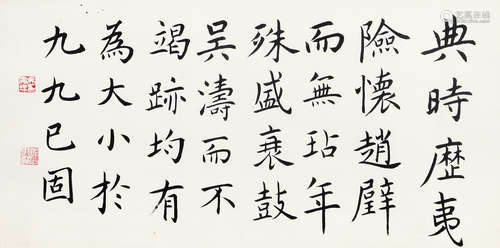 典時歷夷
險懷趙璧
而無玷年
殊盛衰鼓
吳濤而不
竭跡均有
為大小於
九九已固